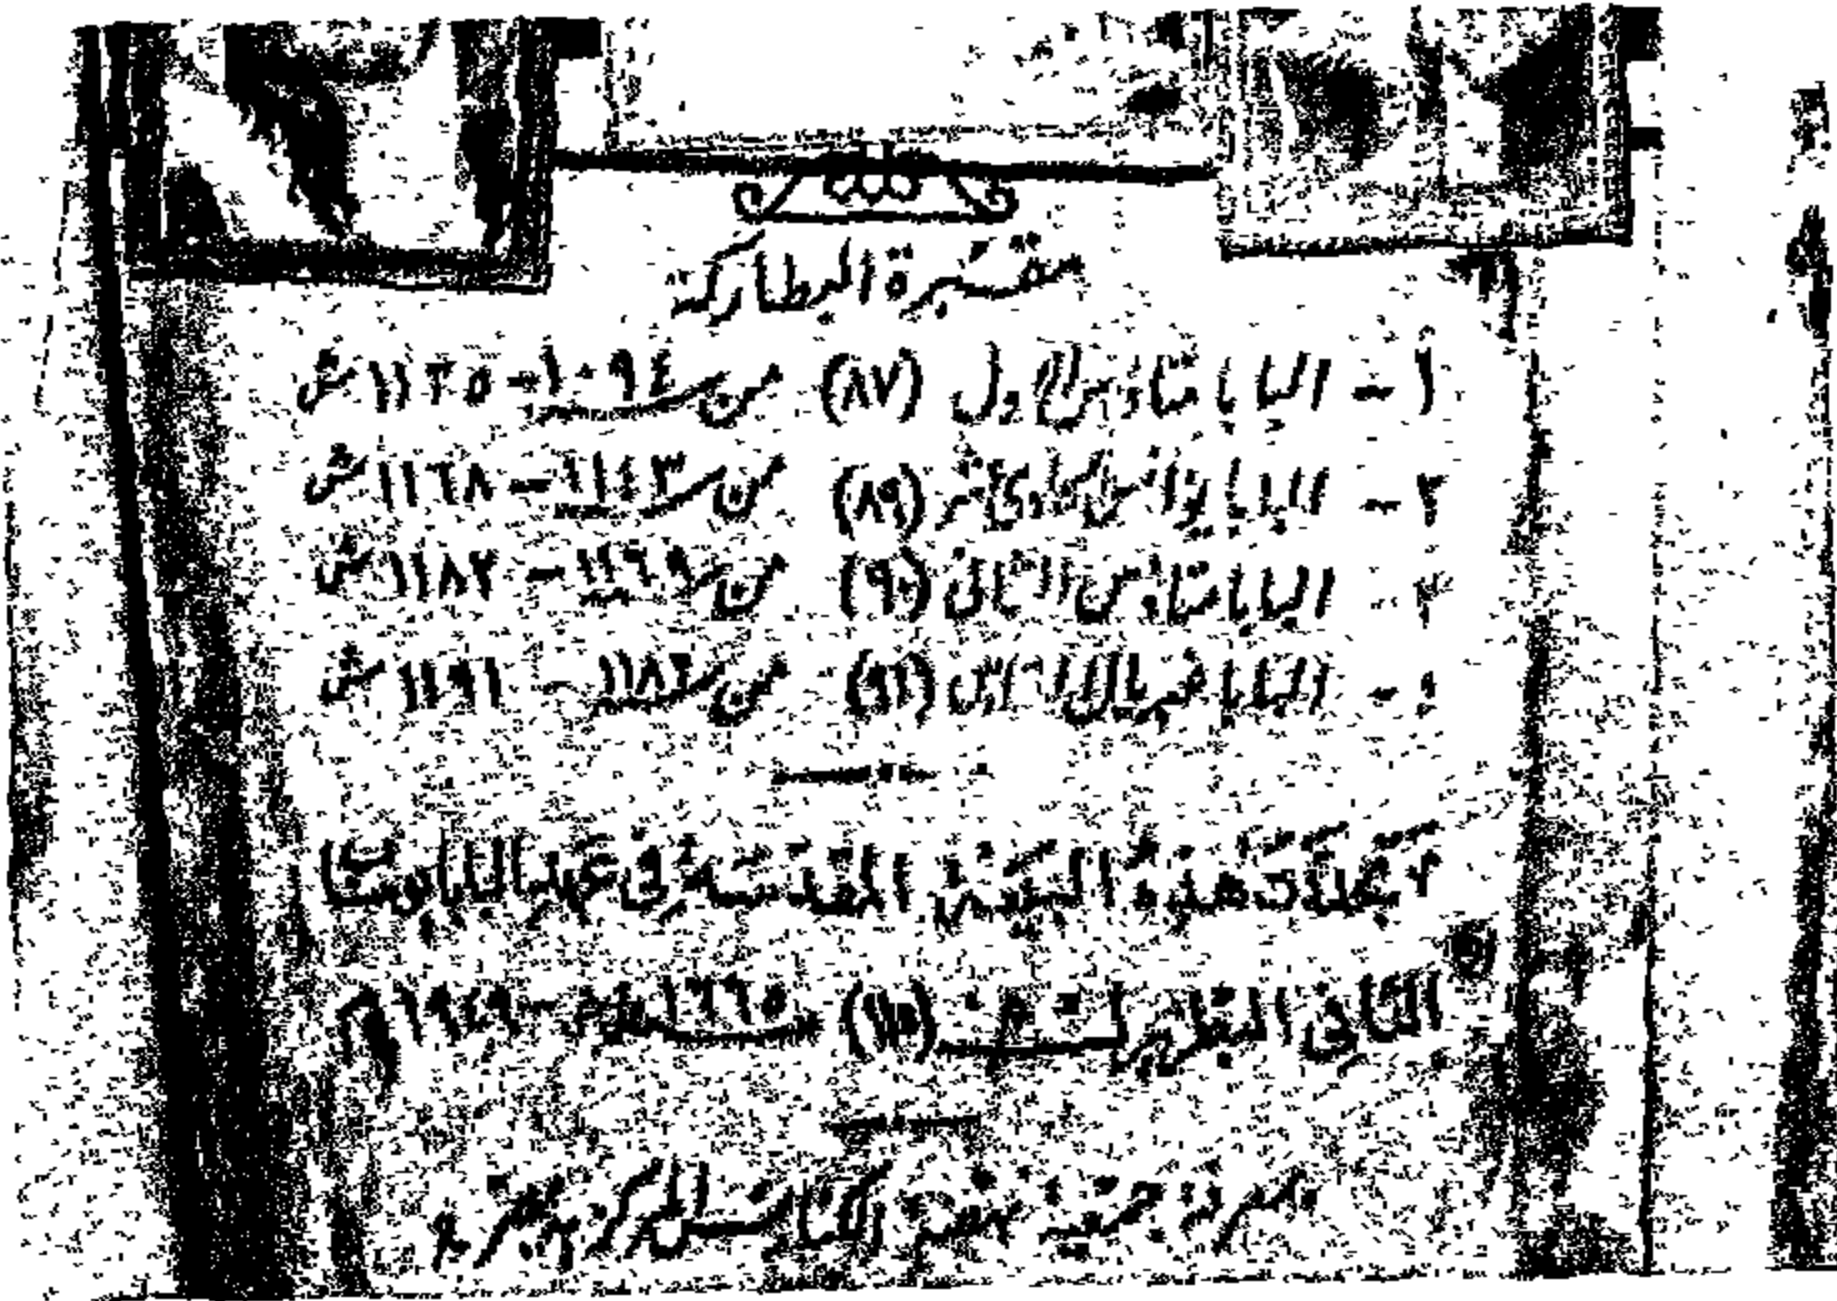 مقبرة البطاركة
١ - البابا متاؤس الأول (٨٧) من سنة ١٠٩٤ - ١١٢٥ ش
٢ - البابا يوأنس الحادى عشر (٨٩) من سنة ١١٤٣ - ١١٦٨ ش
٣ - البابا متاوس الثانى (٩٠) من سنة ١١٦٩ - ١١٨٢ ش
٤ - البابا غبريال السادس (٩١) من سنة ١١٨٢ - ١١٩١ ش
تجددت هذه البقعة المقدسة فى عهد البابا يوساب
الثانى البطريرك (١١٥) سنة ١٦٦٥ ش - ١٩٤٩ م